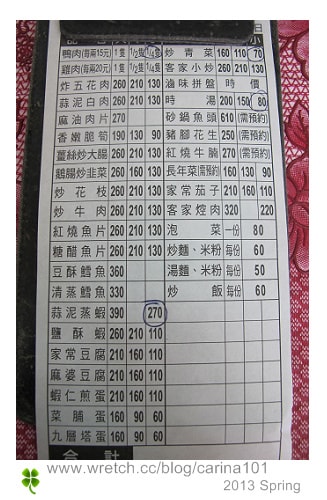 鴨肉(每兩15元) 1隻 1/2隻 1/4隻 炒青菜 160 110 70
雞肉(每兩20元) 1隻 1/2隻 1/4隻 客家小炒 260 210 130
炸五花肉 260 210 130 滷味拼盤 時價
蒜泥白肉 260 210 130 時湯 200 150 80
麻油肉片 270 砂鍋魚頭 610 (需預約)
香嫩脆筍 190 130 90 豬腳花生 250 (需預約)
薑絲炒大腸 260 210 130 紅燒牛腩 270 (需預約)
鵝腸炒韭菜 160 110 長年菜(需預約) 160 130 90
炒花枝 260 210 130 家常茄子 210 160 110
炒牛肉 260 210 130 客家焢肉 320 220
紅燒魚片 260 210 130 泡菜 一份 80
糖醋魚片 260 210 130 炒麵、米粉 每份 60
豆酥鱈魚 360 湯麵、米粉 每份 50
清蒸鱈魚 330 炒飯 每份 60
蒜泥蒸蝦 390 270
鹽酥蝦 260 210 110
家常豆腐 210 160 110
麻婆豆腐 210 160 110
蝦仁煎蛋 210 160 110
菜脯蛋 160 90 60
九層塔蛋 160 90 60
合計
www.wretch.cc/blog/carina101
2013 Spring